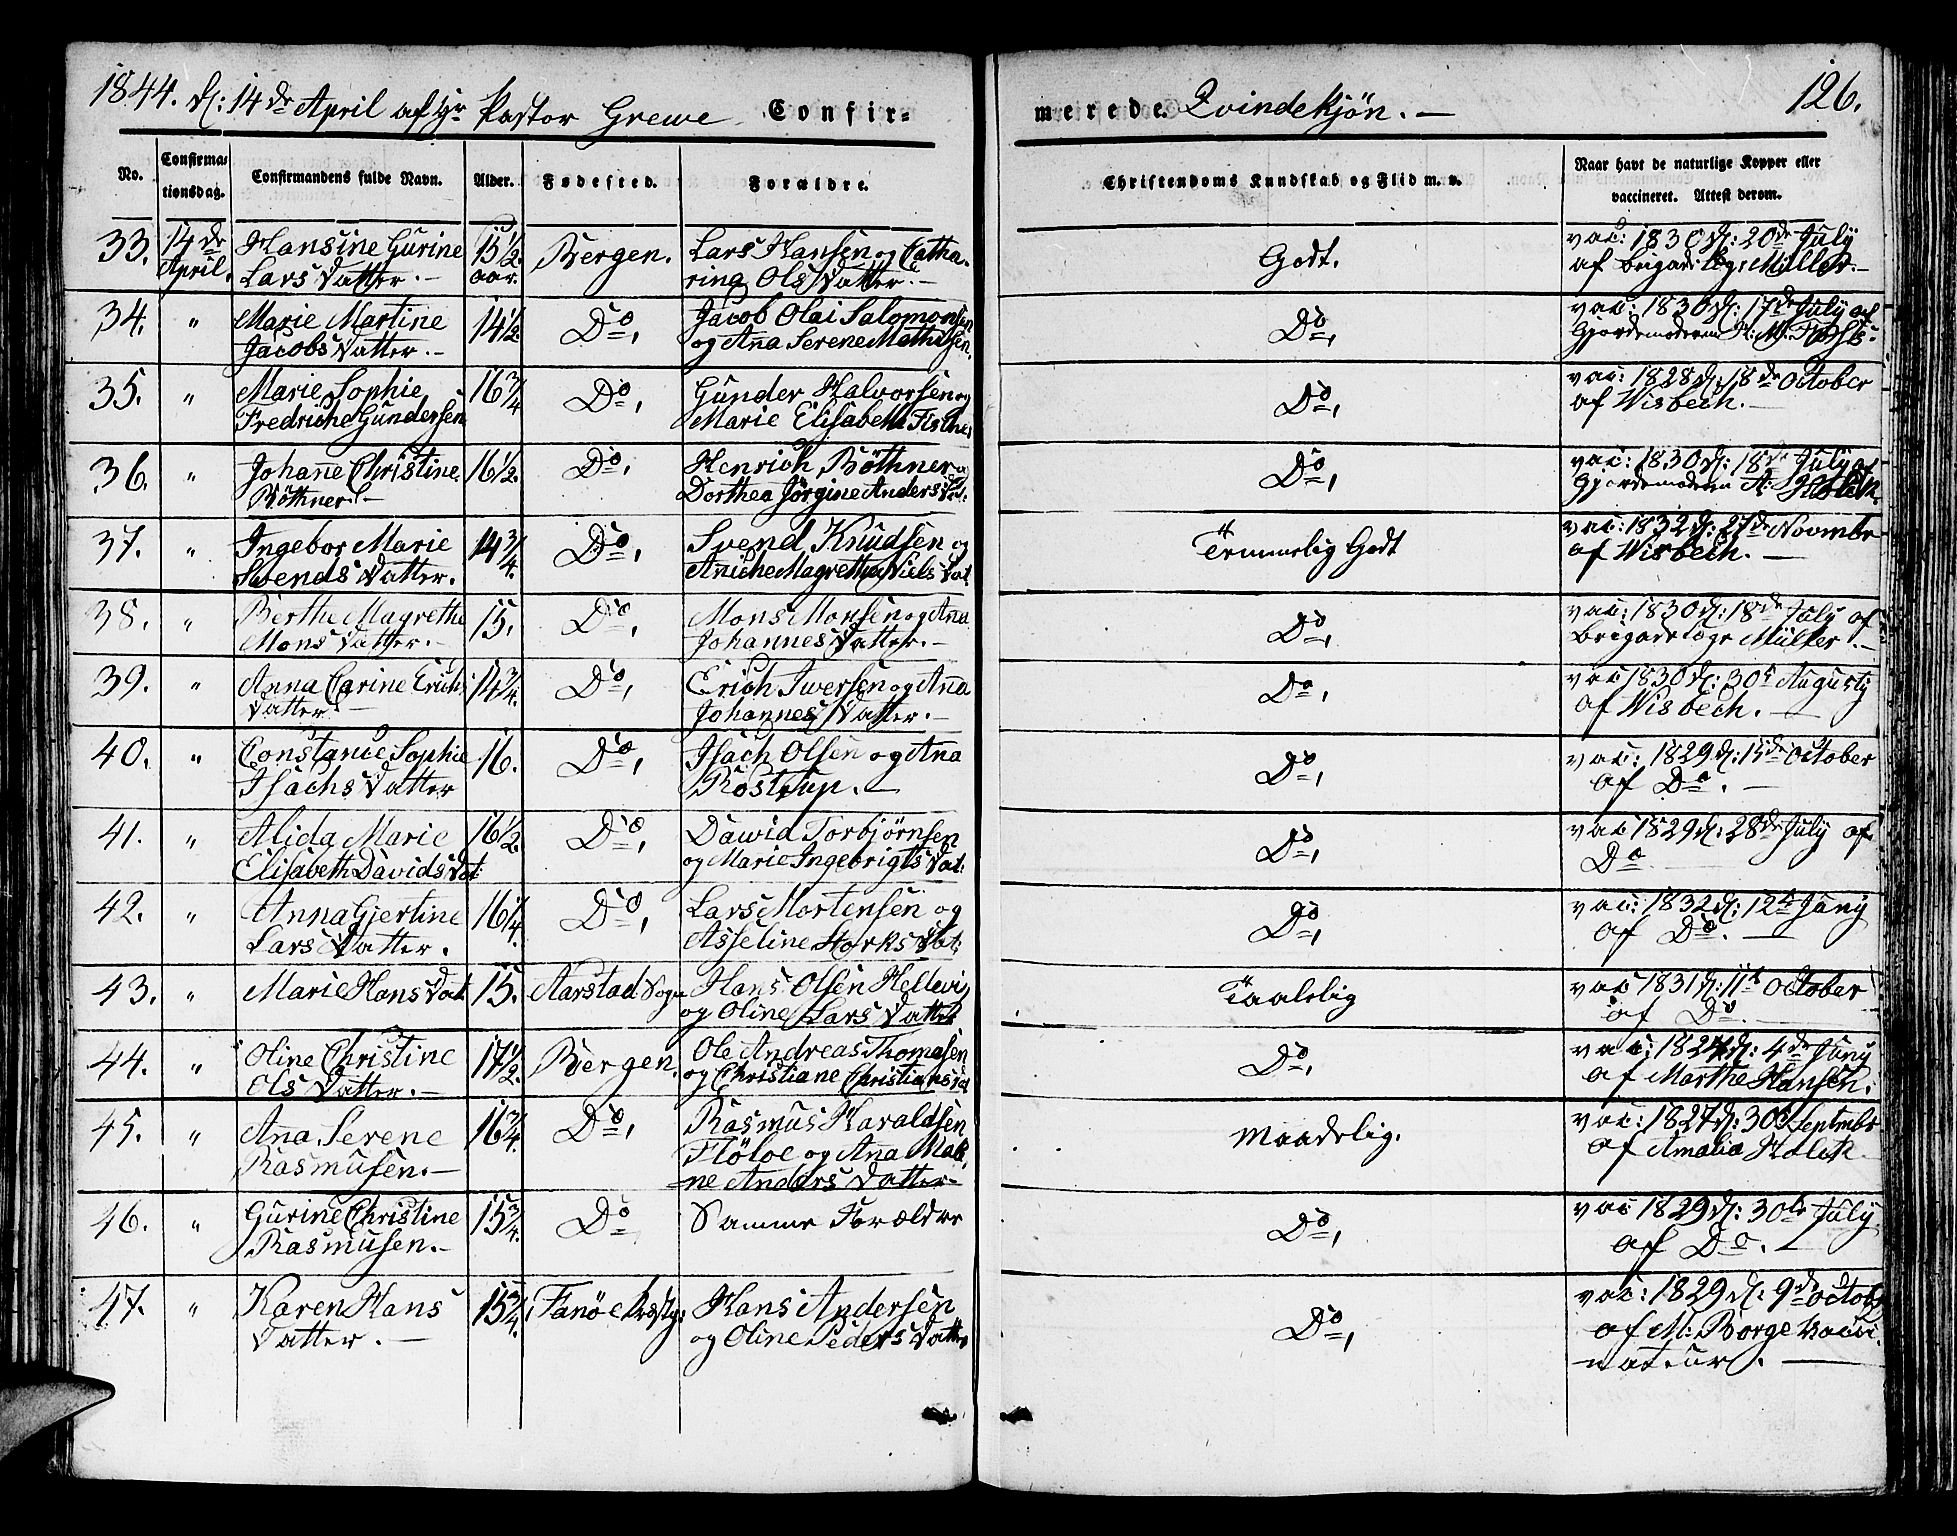 1844. d: 14de April af Hr Pastor Grewe Confir-
merede Qvindekjön. —
126.
No.
Confirma-
tionsdag.
Confirmandens fulde Navn.
Alder.
Fødested.
Forældre.
Christendoms Kundskab og Flid m. v.
Naar havt de naturlige Kopper eller
vaccineret. Attest derom.
33. 14de Hansine Gurine 15 1/2 Bergen. Lars Hansen og Catha- Godt. vac: 1830 d: 20de July
April. Lars Datter. — aar. rina Ols Datter. — af Brigade Lgr Müller. —
34. " Marie Martine 14 1/2 Do, Jacob Olai Salomonsen Do, vac: 1830 d: 17de July af
Jacobs Datter. — og Aña Serene Mathisen. Gjordemoderen
35. " Marie Sophie 16 3/4 Do, Gunder Halvorsen og Do, vac: 1828 d: 18de October
Fredriche Gundersen Marie Elisabeth Fischer af Wisbech. —
36. " Johañe Christine 16 1/2. Do, Henrich Böthner og Do, vac: 1830 d: 18de July af
Böthner. — Dorthea Jörgine Anders Dat. Gjordemoderen A: Holck.
37. " Ingebor Marie 14 3/4. Do, Svend Knudsen og Temmelig Godt vac: 1832 d: 27de Novembr
Svends Datter. Añiche Magretha Niels Dat. af Wisbech. —
38. " Berthe Magrethe 15. Do, Mons Monsen og Aña Do, vac: 1830 d: 18de July af
Mons Datter. — Johannes Datter. — Brigadelægr Müller. —
39. " Anna Carine Erichs 14 3/4. Do, Erich Iwersen og Aña Do, vac 1830 d: 30t Augusty
Datter. — Johannes Datter. — af Wisbech. —
40. " Constance Sophie 16. Do, Isach Olsen og Aña Do, vac: 1829 d: 15de October
Isachs Datter Rostrup. — af Do. —
41. " Alida Marie 16 1/2. Do, Dawid Torbjørnsen Do, vac 1829 d: 28de July af
Elisabeth Davids Dat: og Marie Ingebrigts Dat: Do
42. " Anna Gjertine 16 1/4. Do, Lars Mortensen og Do, vac: 1832 d: 12t Juny
Lars Datter. Asseline Storks Dat: af Do. —
43. " Marie Hans Dat 15. Aarstad Sogn Hans Olsen Hellevig Taalelig vac 1831 d: 11t October
og Oline Lars Datter af Do.
44. " Oline Christine 17 1/2. Bergen. Ole Andreas Thomasen Do, vac: 1827 d: 4de Juny
Ols Datter. — og Christiane Christians Dat af Marthe Hansen.
45. " Aña Serene 16 3/4. Do, Rasmus Haraldsen Maadelig. vac: 1827 d: 30t Septmbr
Rasmusen. — Flöloe og Aña Mal- af Amalia Holck.
ne Anders Datter
46. " Gurine Christine 15 3/4. Do Samme Forældre Do, vac 1829 d: 30te July
Rasmusen. — af Do. —
47. " Karen Hans 15 3/4. Fanöe Præstg: Hans Andersen Do, vac: 1829 d: 9de Octobr
Datter. — og Oline Peders Datter af M: Borge Vacci-
nateur. —